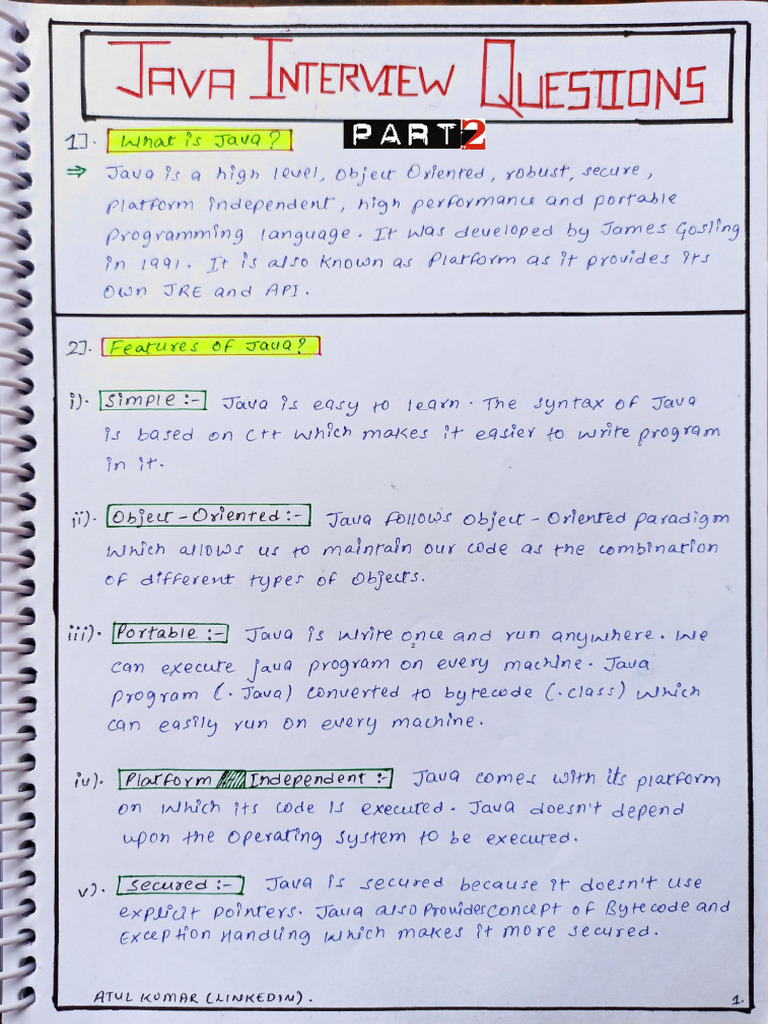 JAVA INTERVIEW QUESTIONS
PART2
1]. What is Java?
⇒ Java is a high level, object Oriented, robust, secure,
platform independent, high performance and portable
programming language. It was developed by James Gosling
in 1991. It is also known as Platform as it provides its
own JRE and API.
2]. Features of Java?
i). Simple :- Java is easy to learn. The syntax of Java
is based on C++ which makes it easier to write program
in it.
ii). Object-Oriented :- Java follows Object-Oriented paradigm
which allows us to maintain our code as the combination
of different types of objects.
iii). Portable :- Java is write once and run anywhere. We
2
can execute java program on every machine. Java
program (.Java) converted to bytecode (.class) which
can easily run on every machine.
iv). Platform Independent :- Java comes with its platform
on which its code is executed. Java doesn't depend
upon the operating system to be executed.
v). Secured :- Java is secured because it doesn't use
explicit pointers. Java also provides concept of Bytecode and
Exception Handling which makes it more secured.
ATUL KUMAR (LINKEDIN). 1.